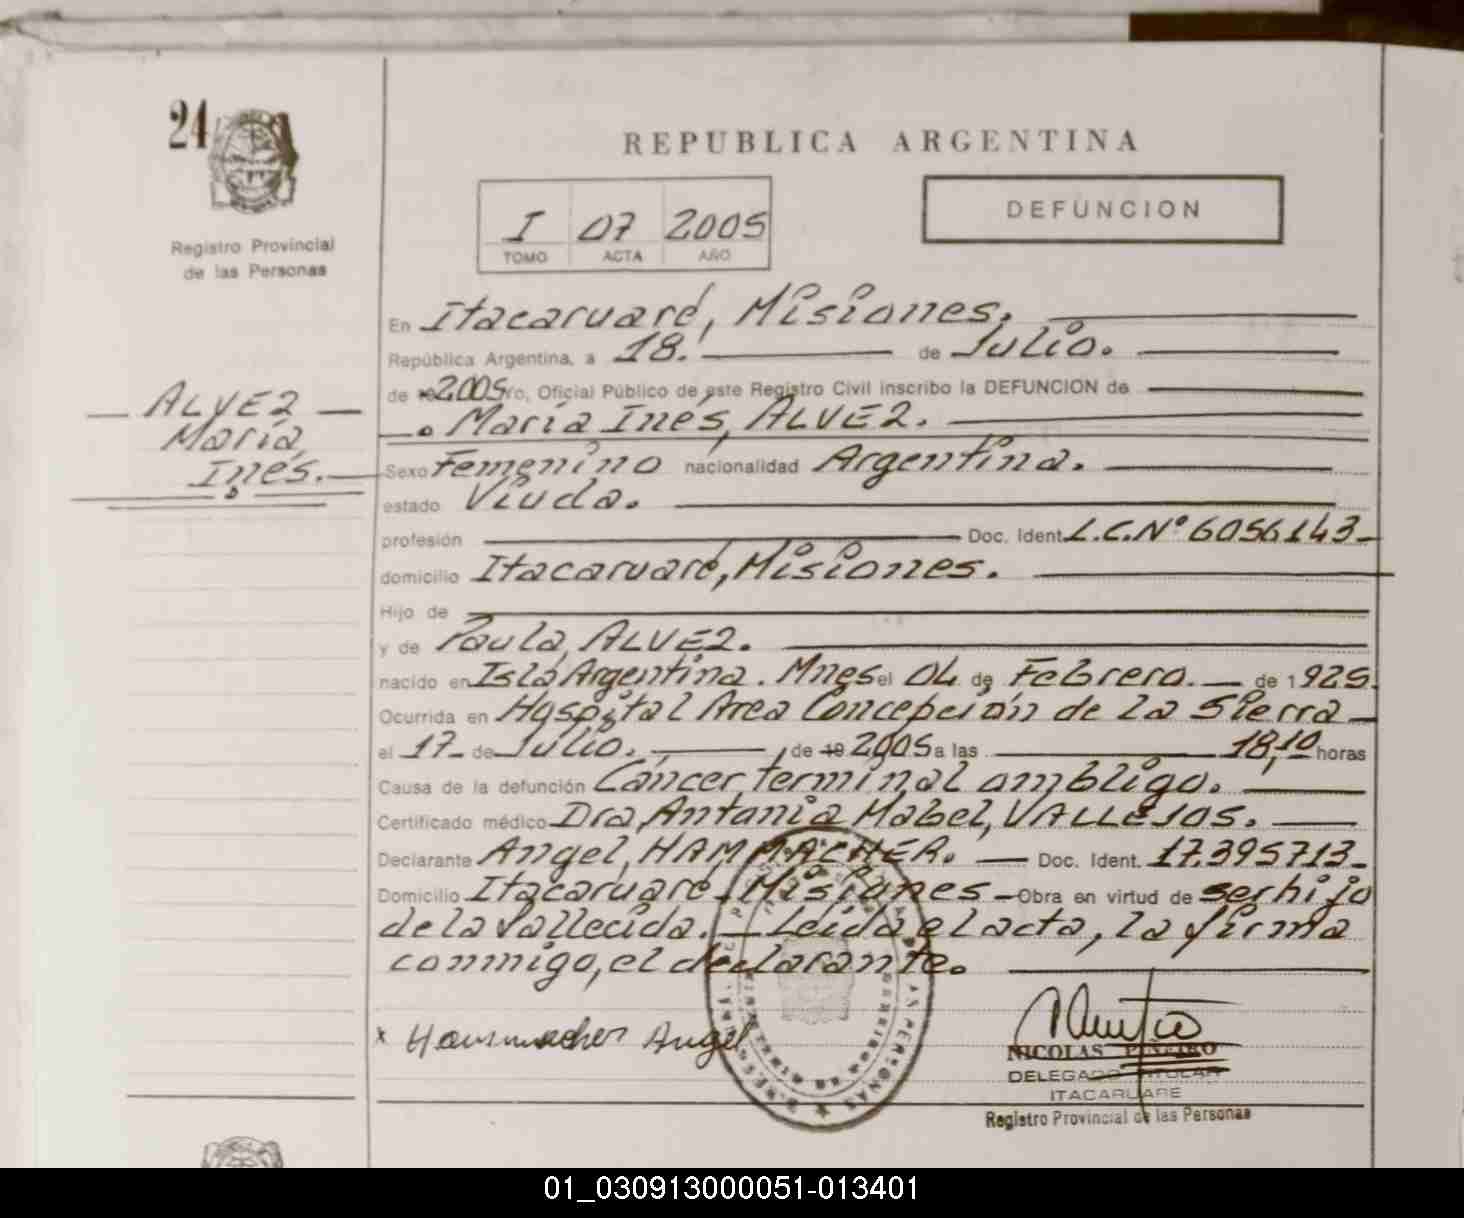 24
REPUBLICA ARGENTINA
I 07 2005
TOMO ACTA AÑO
DEFUNCION
Registro Provincial
de las Personas
ALVEZ
María
Inés.
En Itacaruaré, Misiones.
República Argentina, a 18. de Julio.
de 2005 Yo, Oficial Público de este Registro Civil inscribo la DEFUNCION de
María Inés, ALVEZ.
Sexo Femenino nacionalidad Argentina.
estado Viuda.
profesión Doc. Ident. L.C.Nº 6056143
domicilio Itacaruaré, Misiones.
Hijo de
y de Paula, ALVEZ.
nacido en Isla Argentina. Mnes el 04 de Febrero. de 1925.
Ocurrida en Hospital Area Concepción de la Sierra
el 17 de Julio. de 19 2005 a las 18,10 horas
Causa de la defunción Cáncer terminal ombligo.
Certificado médico Dra, Antonia Mabel, VALLEJOS.
Declarante Angel, HAMMACHER. Doc. Ident. 17.395713
Domicilio Itacaruaré Misiones Obra en virtud de ser hijo
de la fallecida. Leída el acta, la firma
conmigo, el declarante.
x Hammacher Angel
NICOLAS PIÑEIRO
DELEGADO TITULAR
ITACARUARE
Registro Provincial de las Personas
01_030913000051-013401